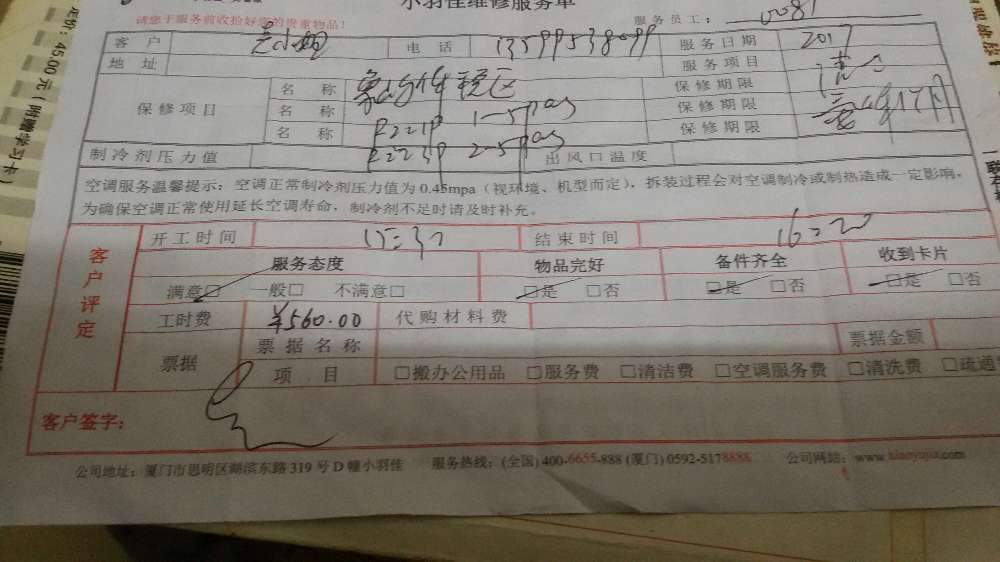 小羽佳维修服务单
请您于服务前收拾好您的贵重物品! 服务员工: 0081
客户 电话 13599538099 服务日期 2017
地址 服务项目
保修项目 名称 保修期限
名称 R221P 1-5pas 保修期限
名称 R223P 2-5pas 保修期限
制冷剂压力值 出风口温度
空调服务温馨提示:空调正常制冷剂压力值为0.45mpa(视环境、机型而定),拆装过程会对空调制冷或制热造成一定影响,
为确保空调正常使用延长空调寿命,制冷剂不足时请及时补充。
客户评定
开工时间 结束时间 16:20
服务态度 物品完好 备件齐全 收到卡片
满意□ 一般□ 不满意□ □是 □否 □是 □否 □是 □否
工时费 ¥560.00 代购材料费
票据 票据名称 票据金额
项目 □搬办公用品 □服务费 □清洁费 □空调服务费 □清洗费 □疏通
客户签字:
公司地址:厦门市思明区湖滨东路319号D幢小羽佳 服务热线:(全国)400-6655-888 (厦门)0592-5178888 公司网站:www.xiaoyujia.com
定价:45.00元(附赠学习卡)